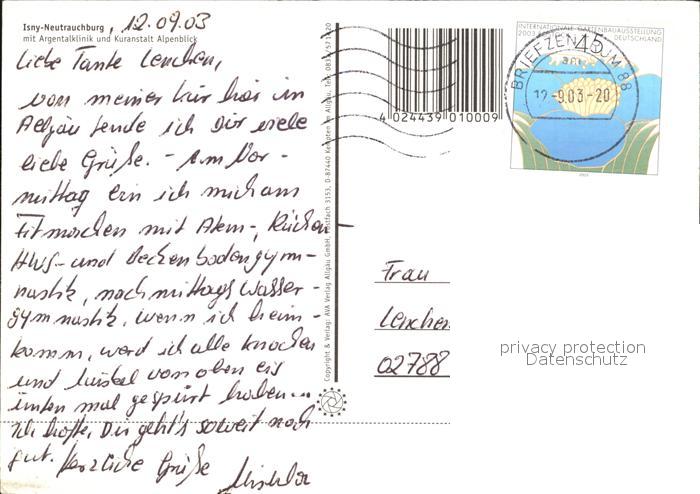 Isny-Neutrauchburg, 12.09.03
mit Argentalklinik und Kuranstalt Alpenblick
Liebe Tante Lenchen,
von meiner Kur hier in
Allgäu sende ich Dir viele
liebe Grüße. - Am Vor-
mittag bin ich mich am
Fit machen mit Atem-, Rücken-
HWS- und Beckenbodengym-
nastik, nachmittags Wasser-
gymnastik, wenn ich heim-
komm, werd ich alle Knochen
und Muskel von oben bis
unten mal gespürt haben...
Ich hoffe, Dir geht's soweit noch
gut. Herzliche Grüße
Copyright & Verlag: AVA Verlag Allgäu GmbH, Postfach 3153, D-87440 Kempten im Allgäu, Tel. 0831/571220
4 024439 010009
INTERNATIONALE GARTENBAUAUSSTELLUNG
2003 DEUTSCHLAND
45
BRIEFZENTRUM 88
12.-9.03-20
Frau
Lenchen
02788
privacy protection
Datenschutz